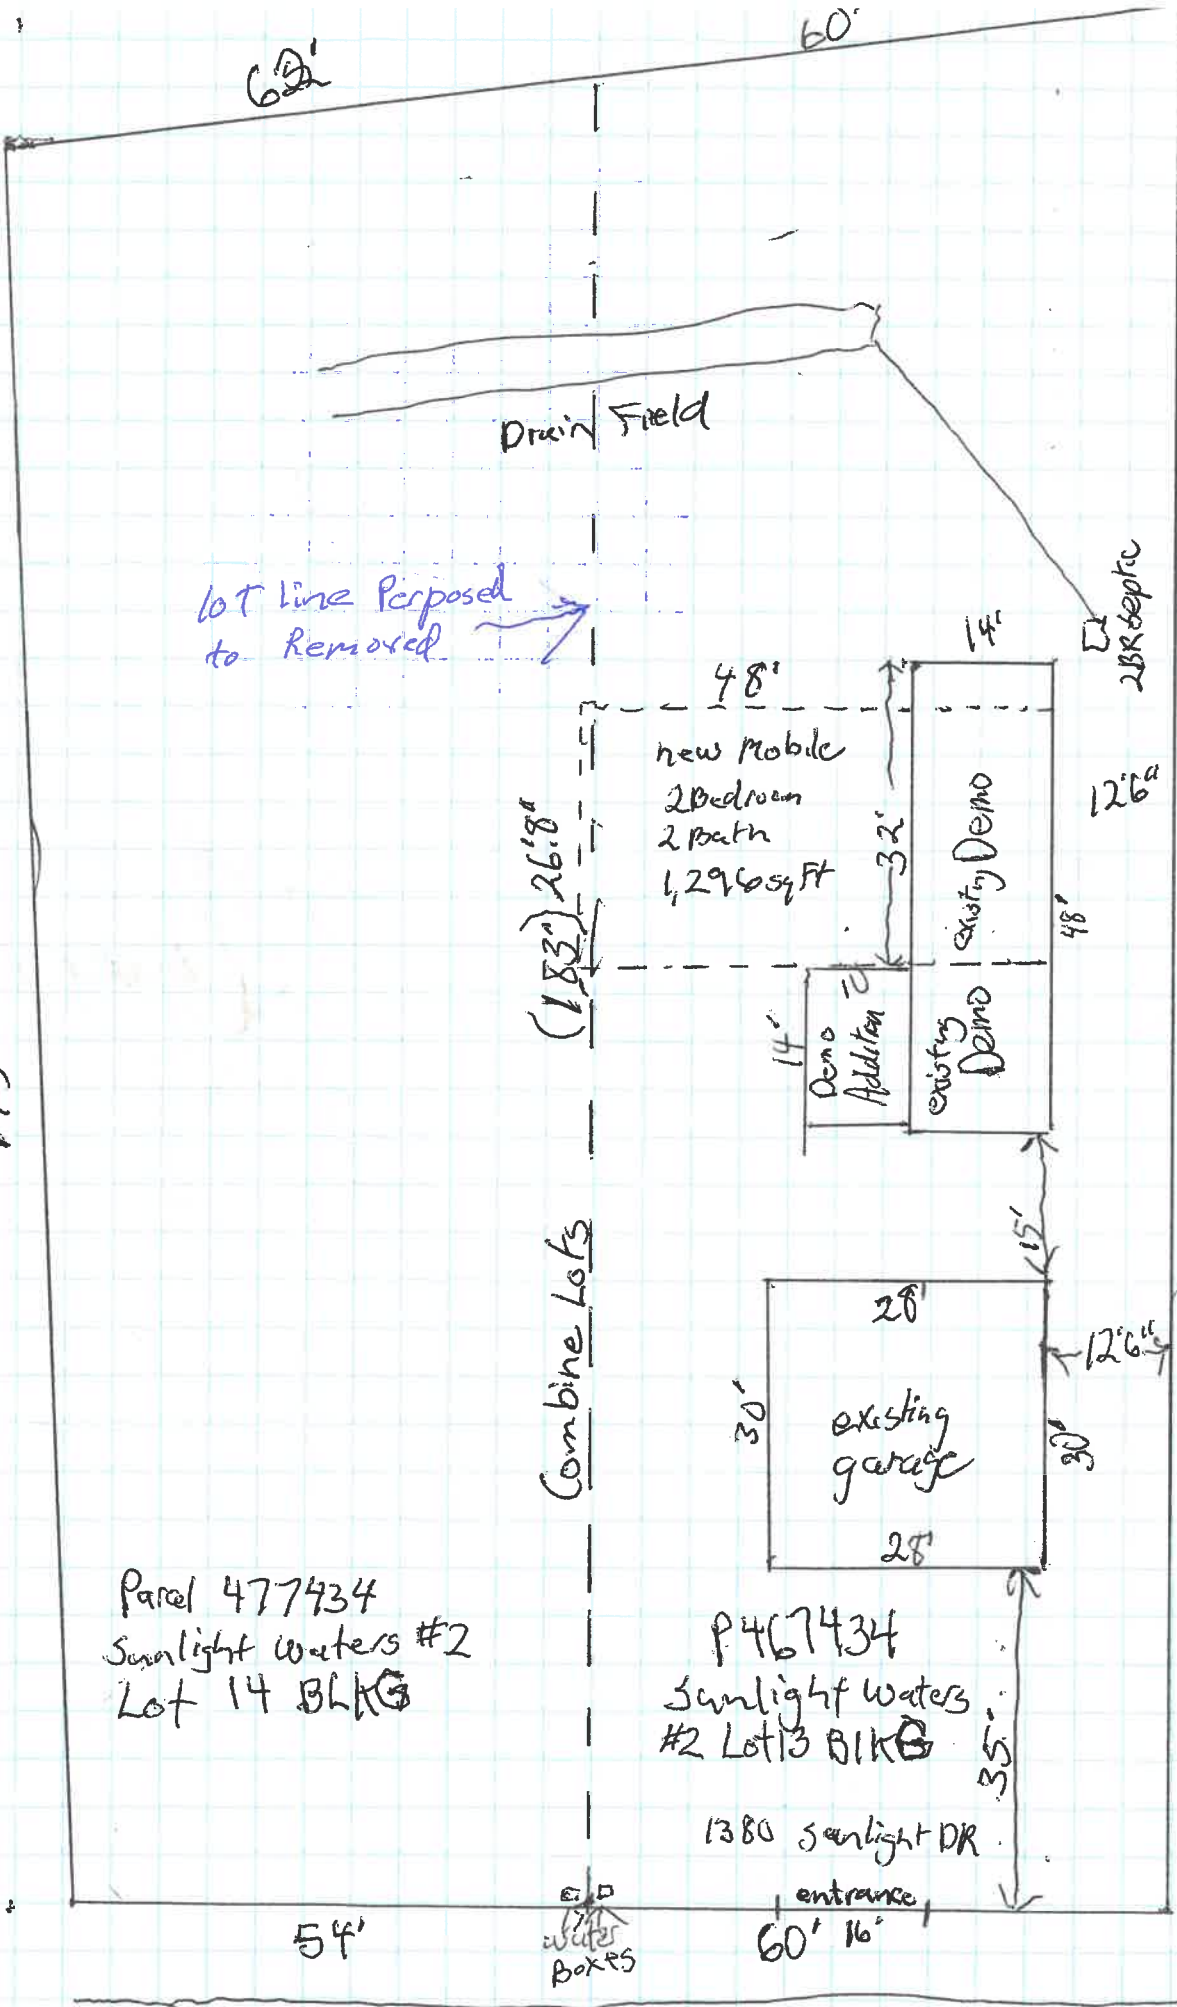 60'
62'
Drain Field
lot line Perposed
to Removed
2BR septic
14'
48'
new Mobile
2 Bedroom
2 Bath
1,296 sq Ft
32'
existing Demo
12'6"
48'
26'8"
(183")
14'
Demo
Addition
10
existing
Demo
15'
Combine Lots
28'
12'6"
30'
existing
garage
30'
28'
Parcel 477434
Sunlight waters #2
Lot 14 BLKG
P467434
Sunlight waters
#2 Lot 13 BlkG
35'
1380 Sunlight DR
entrance
54'
water
Boxes
60'
16'